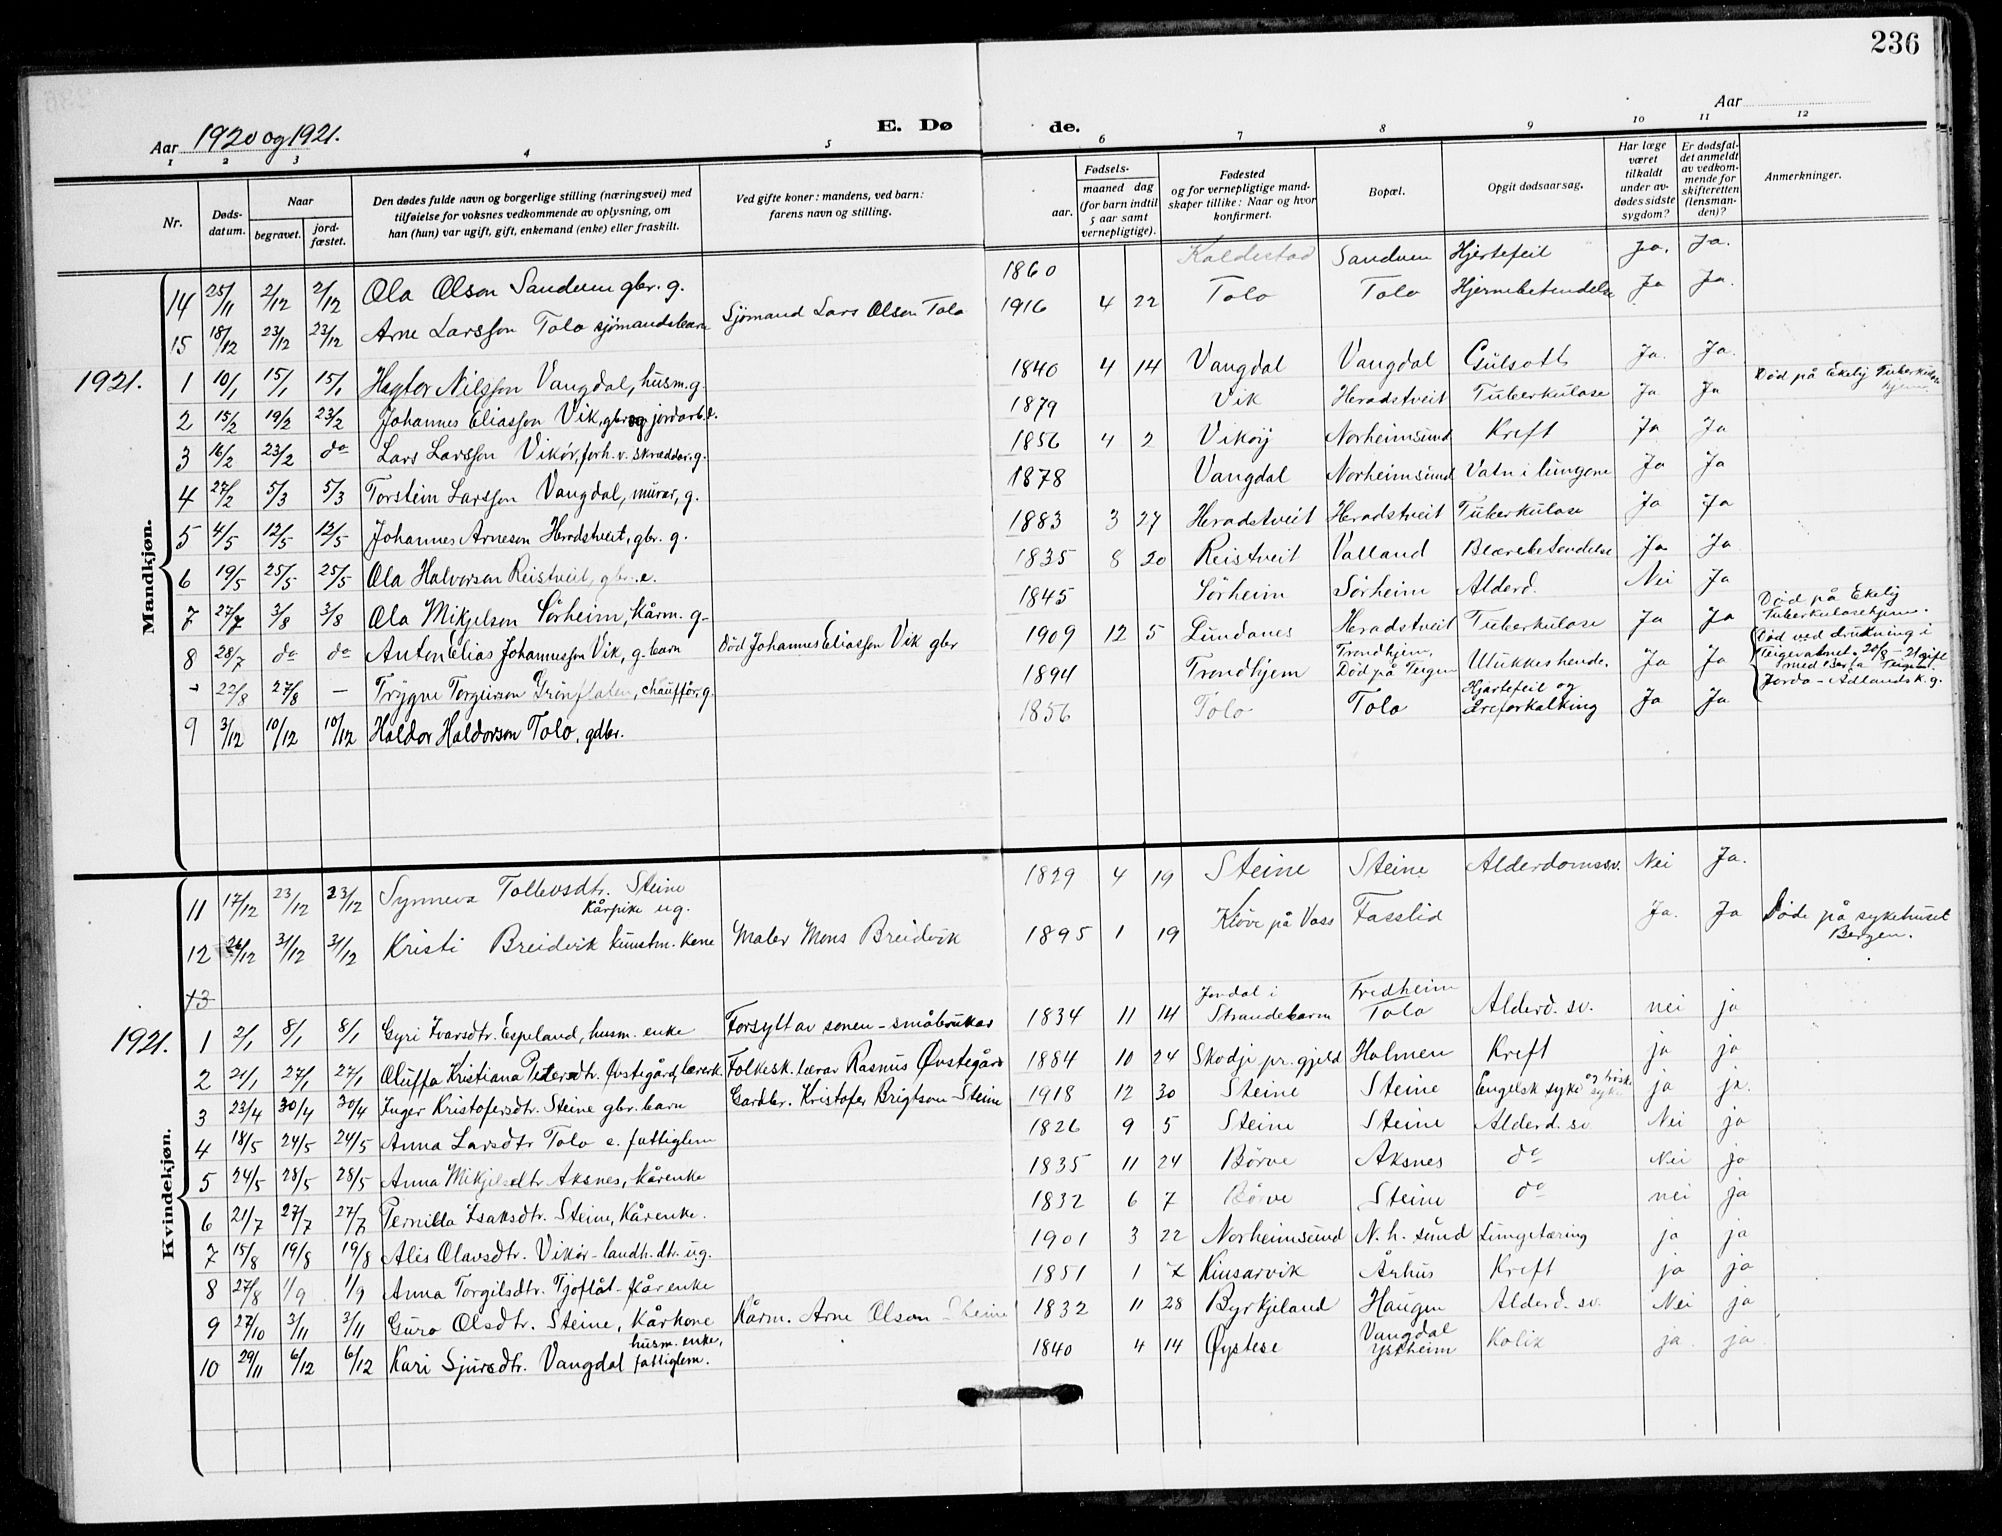 236
Aar 1920 og 1921. E. Dø de. Aar
1 2 3 4 5 6 7 8 9 10 11 12
Nr. Døds-datum. Naar begravet. jord-fæstet. Den dødes fulde navn og borgerlige stilling (næringsvei) med tilføielse for voksnes vedkommende av oplysning, om han (hun) var ugift, gift, enkemand (enke) eller fraskilt. Ved gifte koner: mandens, ved barn: farens navn og stilling. Fødsels- aar. maaned dag (for barn indtil 5 aar samt vernepligtige). Fødested og for vernepligtige mandskaper tillike: Naar og hvor konfirmert. Bopæl. Opgit dødsaarsag. Har læge været tilkaldt under avdødes sidste sygdom? Er dødsfaldet anmeldt av vedkommende for skifteretten (lensmanden)? Anmerkninger.
Mandkjøn.
14 25/11 2/12 2/12 Ola Olson Sandven gbr. g. 1860 Kaldestad Sandven Hjertefeil Ja. Ja.
15 18/12 23/12 23/12 Arne Larsson Tolo sjømandsbarn Sjömand Lars Olson Tolo 1916 4 22 Tolo Tolo Hjernebetendelse Ja Ja.
1921. 1 10/1 15/1 15/1 Nilsson Vangdal, husm. g. 1840 4 14 Vangdal Vangdal Gulsott Ja. Ja.
2 15/2 19/2 23/2 Johannes Eliasson Vik, gbr og jordarb. 1879 Vik Heradstveit Tuberkulose Ja Ja Død på Ekelij Tuberkulose hjem.
3 16/2 23/2 do Lars Larsson Vikør, forh. v. skrædder. g. 1856 4 2 Vikøy Norheimsund Kreft Ja Ja
4 27/2 5/3 5/3 Torstein Larsson Vangdal, murar, g. 1878 Vangdal Norheimsund Vatn i lungene Ja Ja
5 4/5 12/5 12/5 Johannes Arneson Heradstveit, gbr. g. 1883 3 27 Heradstveit Heradstveit Tuberkulose Ja Ja
6 19/5 25/5 25/5 Ola Halvorson Reistveit, gbr. e. 1835 8 20 Reistveit Valland Blærebetendelse Ja Ja
7 27/7 3/8 3/8 Ola Mikjelson Sørheim, Kårm. g. 1845 Sørheim Sørheim Alderd. Nei Ja
8 28/7 do do Anton Elias Johannesson Vik, g. barn Död Johannes Eliasson Vik gbr 1909 12 5 Lundanes Heradstveit Tuberkulose Ja Ja Død på Ekelij Tuberkulosehjem.
- 22/8 27/8 - Trygve Torgerson Grönflaten, chaufför, g. 1894 Trondhjem Trondhjem, Död på Teigen Ulukkeshende. Ja Ja Död ved drukning i Teigevatnet 20/8 - 21 gift med Berta Teigen. Jorda - Adlandsk. g.
9 3/12 10/12 10/12 Haldor Haldorson Tolo, gdbr. 1856 Tolo Tolo Hjartefeil og Åreforkalking Ja Ja
Kvindekjøn.
11 17/12 23/12 23/12 Synneva Tollevsdtr. Steine Kårpike ug. 1829 4 19 Steine Steine Alderdomssv. Nei Ja.
12 26/12 31/12 31/12 Kristi Breidvik kunstm. kone Maler Mons Breidvik 1895 1 19 Kløve på Voss Fasslid Ja. Ja Döde på sykehuset Bergen.
13
1921. 1 2/1 8/1 8/1 Gyri Ivarsdtr. Espeland, husm. enke Forsylt av sonen - småbrukar 1834 11 14 Jondal i Strandebarm Fredheim Tolo Alderd. sv. nei ja
2 21/1 27/1 27/1 Oluffa Kristiana Petersdtr. Øvstegård, lærerk. Folkesk. lærar Rasmus Øvstegård 1884 10 24 Skodje pr. gjeld Holmen Kreft ja ja
3 23/4 30/4 30/4 Inger Kristofersdtr. Steine gbr. barn Gardbr. Kristofer Brigtson - Steine 1918 12 30 Steine Steine Engelsk syke og ja ja.
4 18/5 24/5 24/5 Anna Larsdtr Tolo e. fattiglem 1826 9 5 Steine Steine Alderd. sv Nei ja
5 24/5 28/5 28/5 Anna Mikjelsdtr Aksnes, Kårenke 1835 11 24 Börve Aksnes do Nei ja
6 21/7 27/7 27/7 Pernilla Isaksdtr. Steine, Kårenke. 1832 6 7 Börve Steine do nei ja
7 15/8 19/8 19/8 Alis Olavsdtr. Vikør - landh. dtr. ug. 1901 3 22 Norheimsund N. h. sund Lungetæring ja ja
8 27/8 1/9 1/9 Anna Torgilsdtr. Tjoflåt - Kårenke 1851 1 Kinsarvik Århus Kreft ja ja
9 27/10 3/11 3/11 Guro Olsdtr. Steine, Kårkone Kårm. Arne Olson - Steine 1832 11 28 Byrkjeland Haugen Alderd. sv. Nei ja
10 29/11 6/12 6/12 Kari Sjursdtr. Vangdal husm. enke, fattiglem. 1840 4 14 Øystese Vangdal Ystheim Kolik ja. ja.